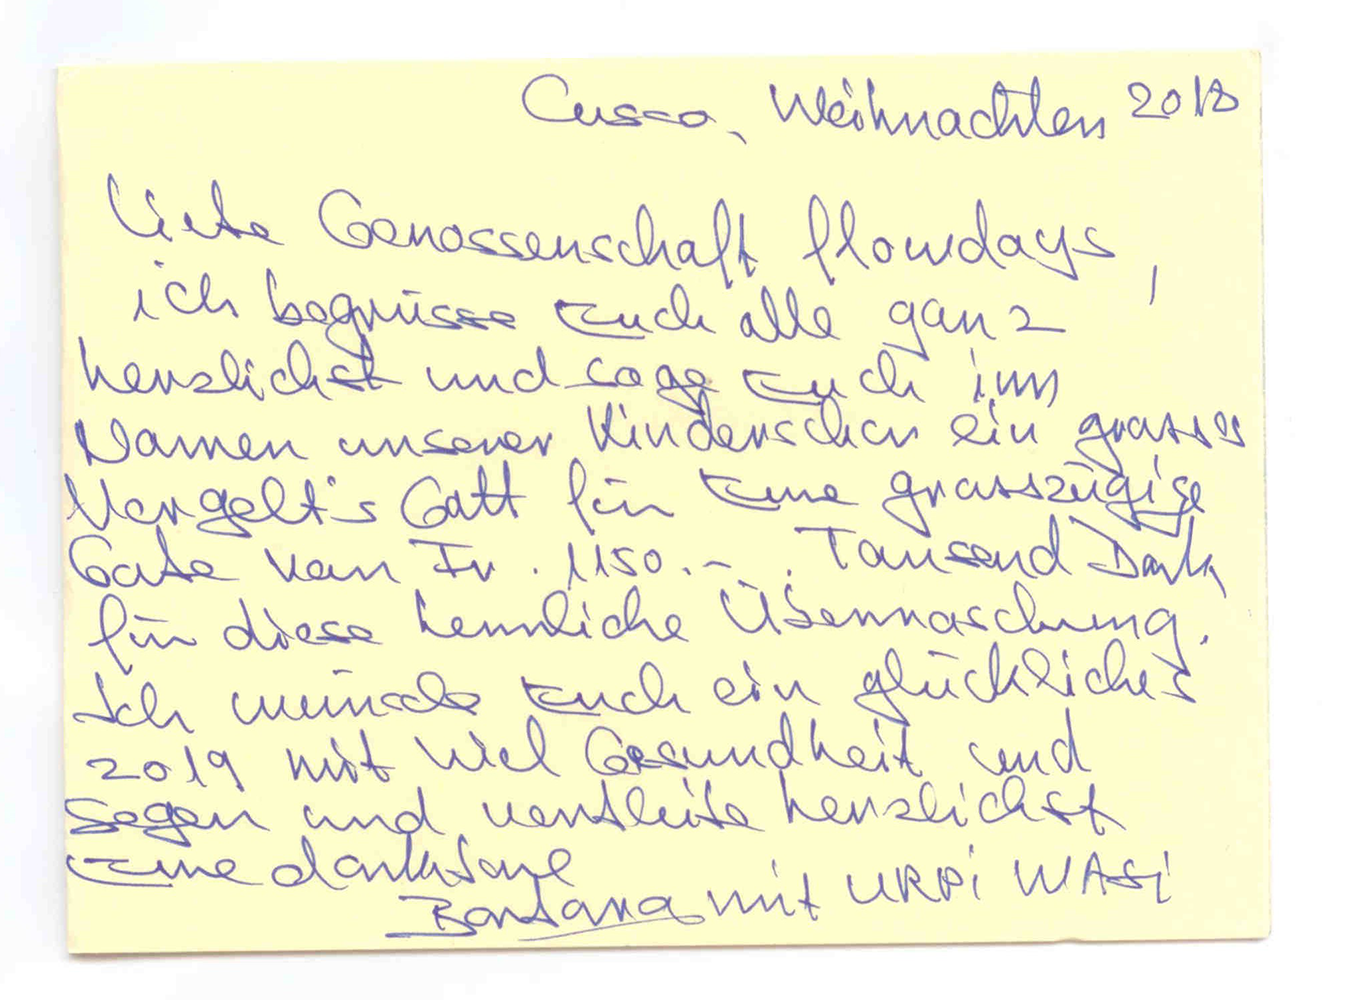 Cusco, Weihnachten 2018
Liebe Genossenschaft flowdays,
ich begrüsse Euch alle ganz
herzlichst und sage Euch im
Namen unserer Kinderschar ein grosses
Vergelt's Gott für Eure grosszügige
Gabe von Fr. 1150.-. Tausend Dank
für diese herrliche Überraschung.
Ich wünsche Euch ein glückliches
2019 mit viel Gesundheit und
Segen und verbleibe herzlichst
Eure dankbare
Barbara mit URPI WASI